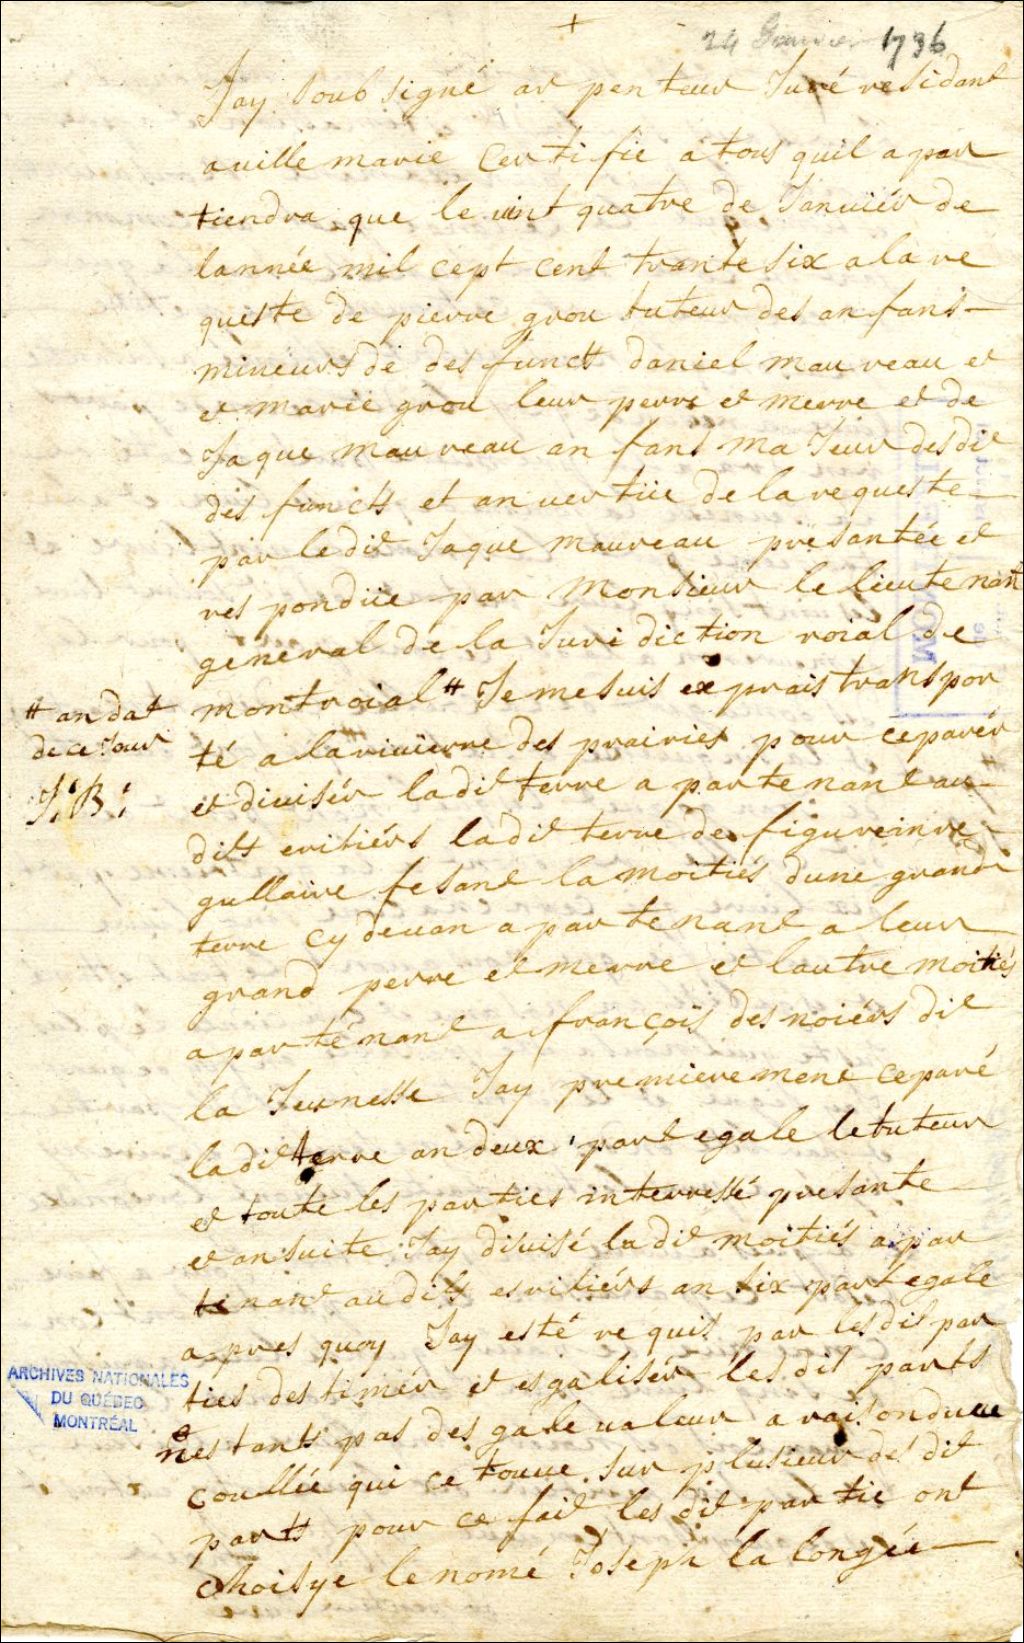 24 Janvier 1736
Jay soub signé ar penteur Juré residant
a uille marie certifie a tous quil a par
tiendra que le uint quatre de Januiér de
lannée mil cept cent trante six a la re
queste de pierre grou tuteur des an fans
mineurs de des functs daniel mau reau et
et marie grou leur perre et merre et de
Jaque mau reau an fans ma Jeur desdit
des functs et an uer tüe de la requeste
par ledit Jaque maureau présantée et
res pondüe par monsieur le lieutenant
general de la Juri diction roial de
montroial # Je me suis ex prais transpor
# an dat
de ce Jour
J.B.
té a la riuierre des prairies pour céparér
et diuisér ladit terre a partenant au
dits eritiérs ladit terre de figureinre
gullaire fesant la moitiés dune grande
terre cy deuan a partenant a leur
grand perre et merre et lautre moitiés
a par ténant a françois des noiérs dit
la Jeunesse Jay premierement ceparé
ladit terre an deux part egale le tuteur
et toute les parties interressé presante
et ansuite Jay diuisé ladit moitiés a par
tenant au dits esritiérs an six part egale
a pres quoy Jay esté re quis par les dit par
ties destimér et esgalisér les dit parts
nestants pas des gale ualeur a raison dune
coullée qui ce trouue sur plusieur des dit
parts pour ce fait les dit partie ont
choisye le nomé Joseph la longée
ARCHIVES NATIONALES
DU QUÉBEC
MONTRÉAL